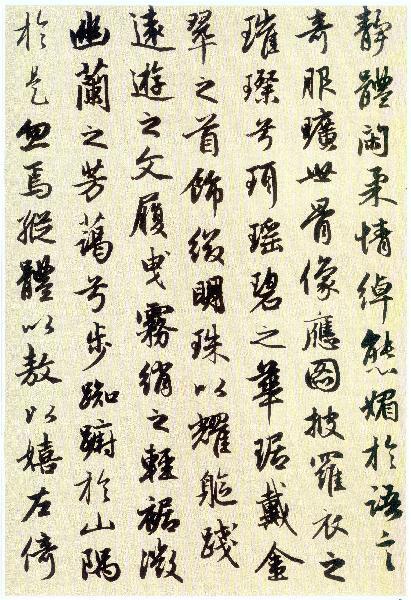 静體閑柔情綽態媚於語言
奇服曠世骨像應圖披羅衣之
璀璨兮珥瑤碧之華琚戴金
翠之首飾綴明珠以耀軀踐
遠遊之文履曳霧綃之輕裾微
幽蘭之芳藹兮步踟躕於山隅
於是忽焉縱體以敖以嬉左倚